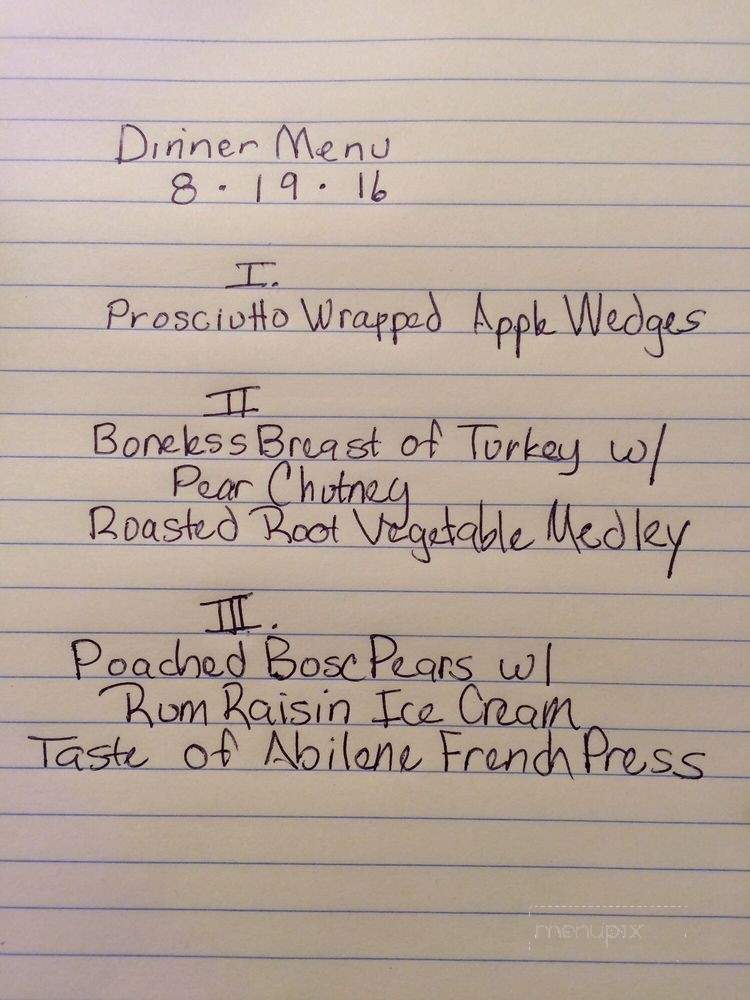 Dinner Menu
8 · 19 · 16
I.
Prosciutto Wrapped Apple Wedges
II
Boneless Breast of Turkey w/
Pear Chutney
Roasted Root Vegetable Medley
III.
Poached Bosc Pears w/
Rum Raisin Ice Cream
Taste of Abilene French Press
menupix